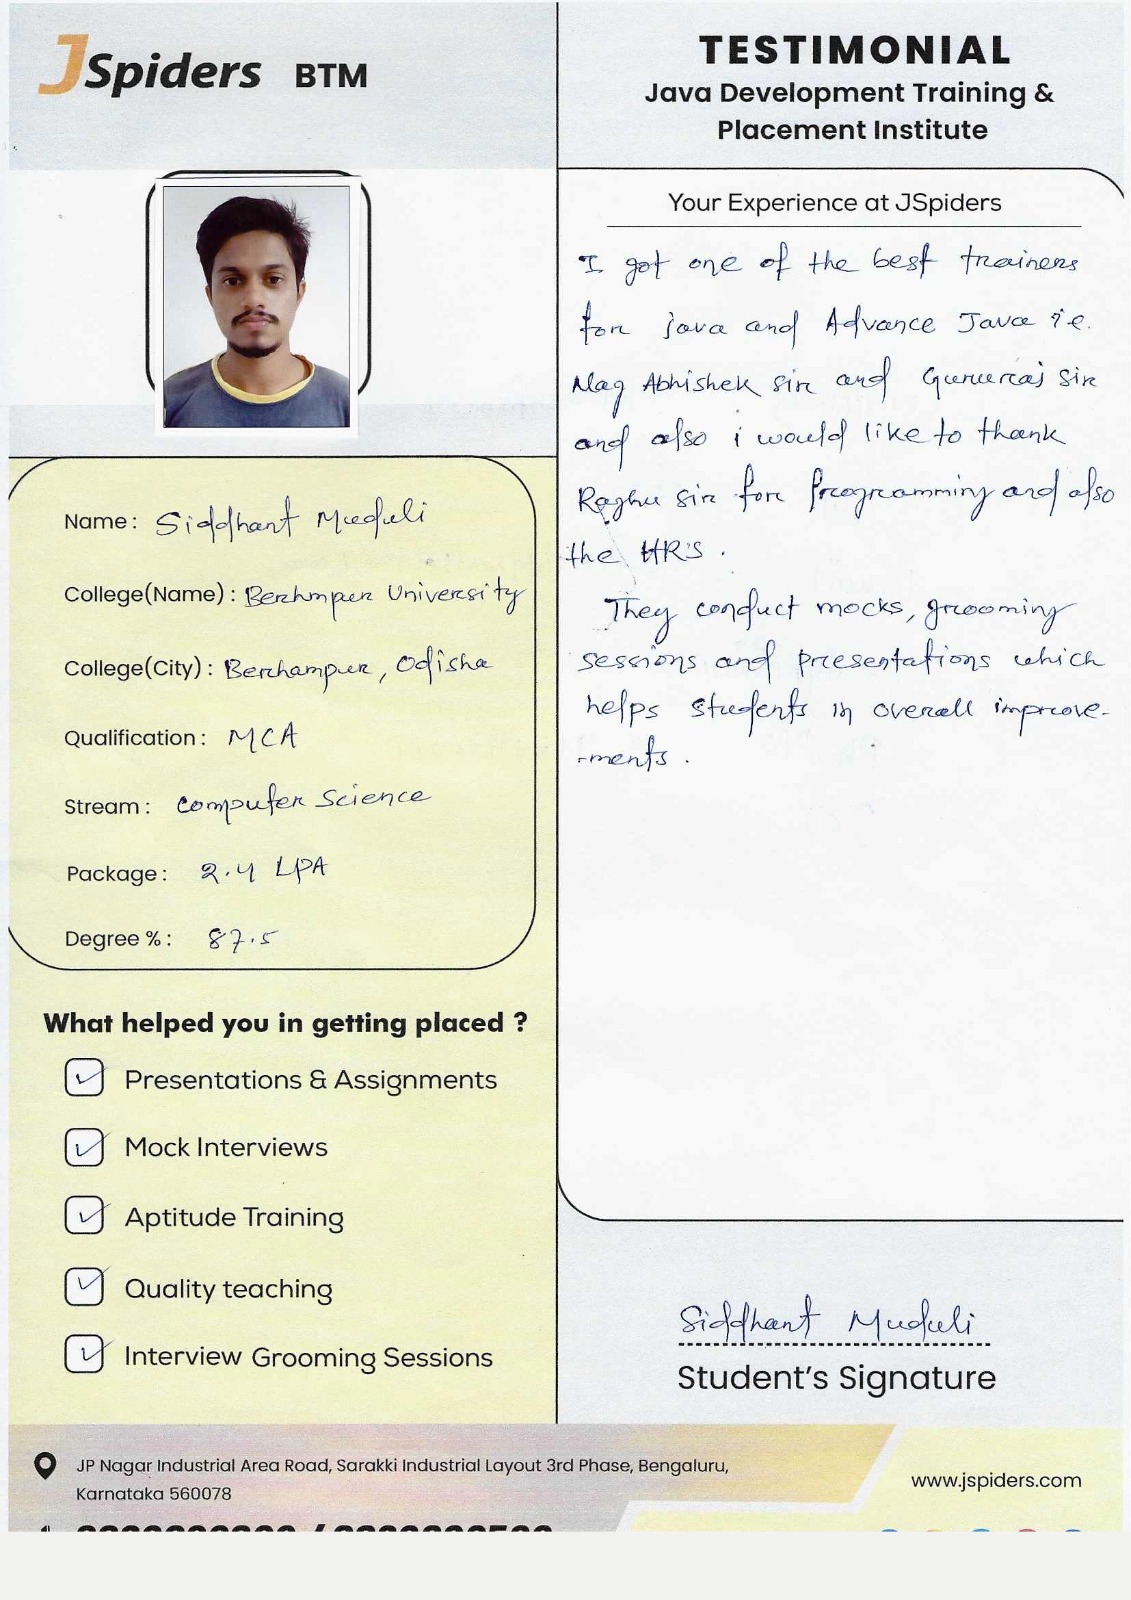 JSpiders BTM
TESTIMONIAL
Java Development Training &
Placement Institute
Name: Siddhant Muduli
College(Name): Berhmpur University
College(City): Berhampur, Odisha
Qualification: MCA
Stream: Computer Science
Package: 2.4 LPA
Degree %: 87.5
What helped you in getting placed ?
Presentations & Assignments
Mock Interviews
Aptitude Training
Quality teaching
Interview Grooming Sessions
Your Experience at JSpiders
I got one of the best trainers
for java and Advance Java i.e.
Nag Abhishek sir and Gururaj sir
and also i would like to thank
Raghu sir for Programming and also
the HR's.
They conduct mocks, grooming
sessions and presentations which
helps students in overall improve-
-ments.
Siddhant Muduli
Student's Signature
JP Nagar Industrial Area Road, Sarakki Industrial Layout 3rd Phase, Bengaluru,
Karnataka 560078
www.jspiders.com